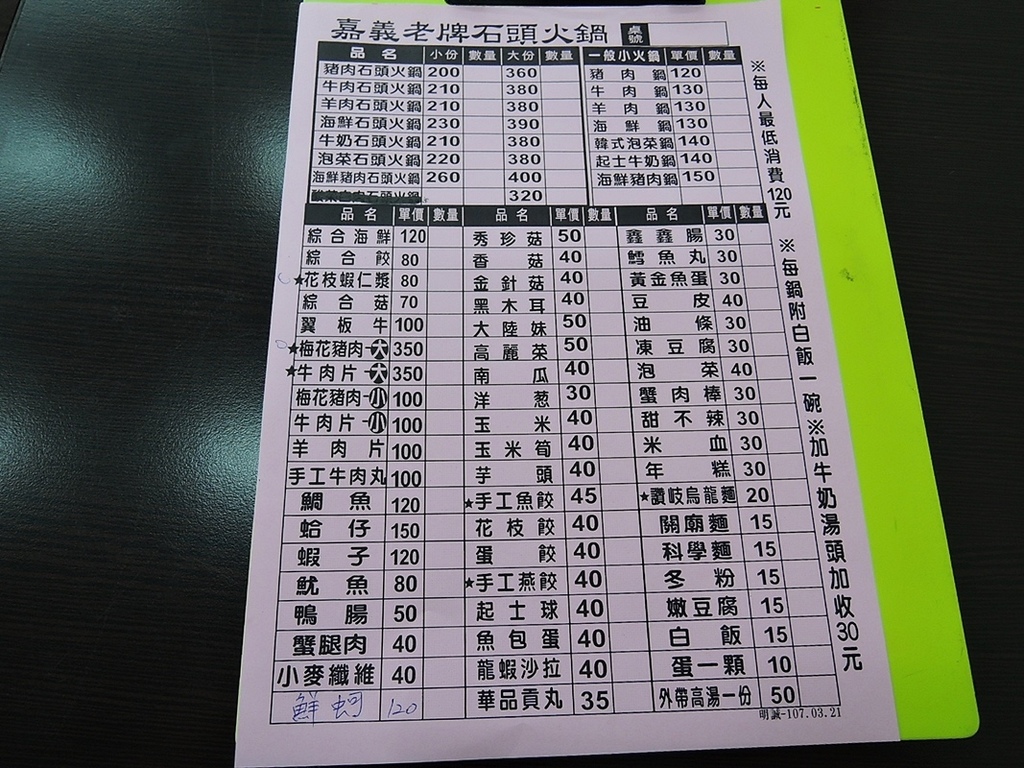 嘉義老牌石頭火鍋 桌號
品名 小份 數量 大份 數量 一般小火鍋 單價 數量
豬肉石頭火鍋 200 360 豬肉鍋 120
牛肉石頭火鍋 210 380 牛肉鍋 130
羊肉石頭火鍋 210 380 羊肉鍋 130
海鮮石頭火鍋 230 390 海鮮鍋 130
牛奶石頭火鍋 210 380 韓式泡菜鍋 140
泡菜石頭火鍋 220 380 起士牛奶鍋 140
海鮮豬肉石頭火鍋 260 400 海鮮豬肉鍋 150
石頭火鍋 320
品名 單價 數量 品名 單價 數量 品名 單價 數量
綜合海鮮 120 秀珍菇 50 鑫鑫腸 30
綜合餃 80 香菇 40 鱈魚丸 30
★花枝蝦仁漿 80 金針菇 40 黃金魚蛋 30
綜合菇 70 黑木耳 40 豆皮 40
翼板牛 100 大陸妹 50 油條 30
★梅花豬肉-大 350 高麗菜 50 凍豆腐 30
★牛肉片-大 350 南瓜 40 泡菜 40
梅花豬肉-小 100 洋葱 30 蟹肉棒 30
牛肉片-小 100 玉米 40 甜不辣 30
羊肉片 100 玉米筍 40 米血 30
手工牛肉丸 100 芋頭 40 年糕 30
鯛魚 120 ★手工魚餃 45 ★讚岐烏龍麵 20
蛤仔 150 花枝餃 40 關廟麵 15
蝦子 120 蛋餃 40 科學麵 15
魷魚 80 ★手工燕餃 40 冬粉 15
鴨腸 50 起士球 40 嫩豆腐 15
蟹腿肉 40 魚包蛋 40 白飯 15
小麥纖維 40 龍蝦沙拉 40 蛋一顆 10
鮮蚵 120 華品貢丸 35 外帶高湯一份 50
明誠-107.03.21
※每人最低消費120元 ※每鍋附白飯一碗※加牛奶湯頭加收30元